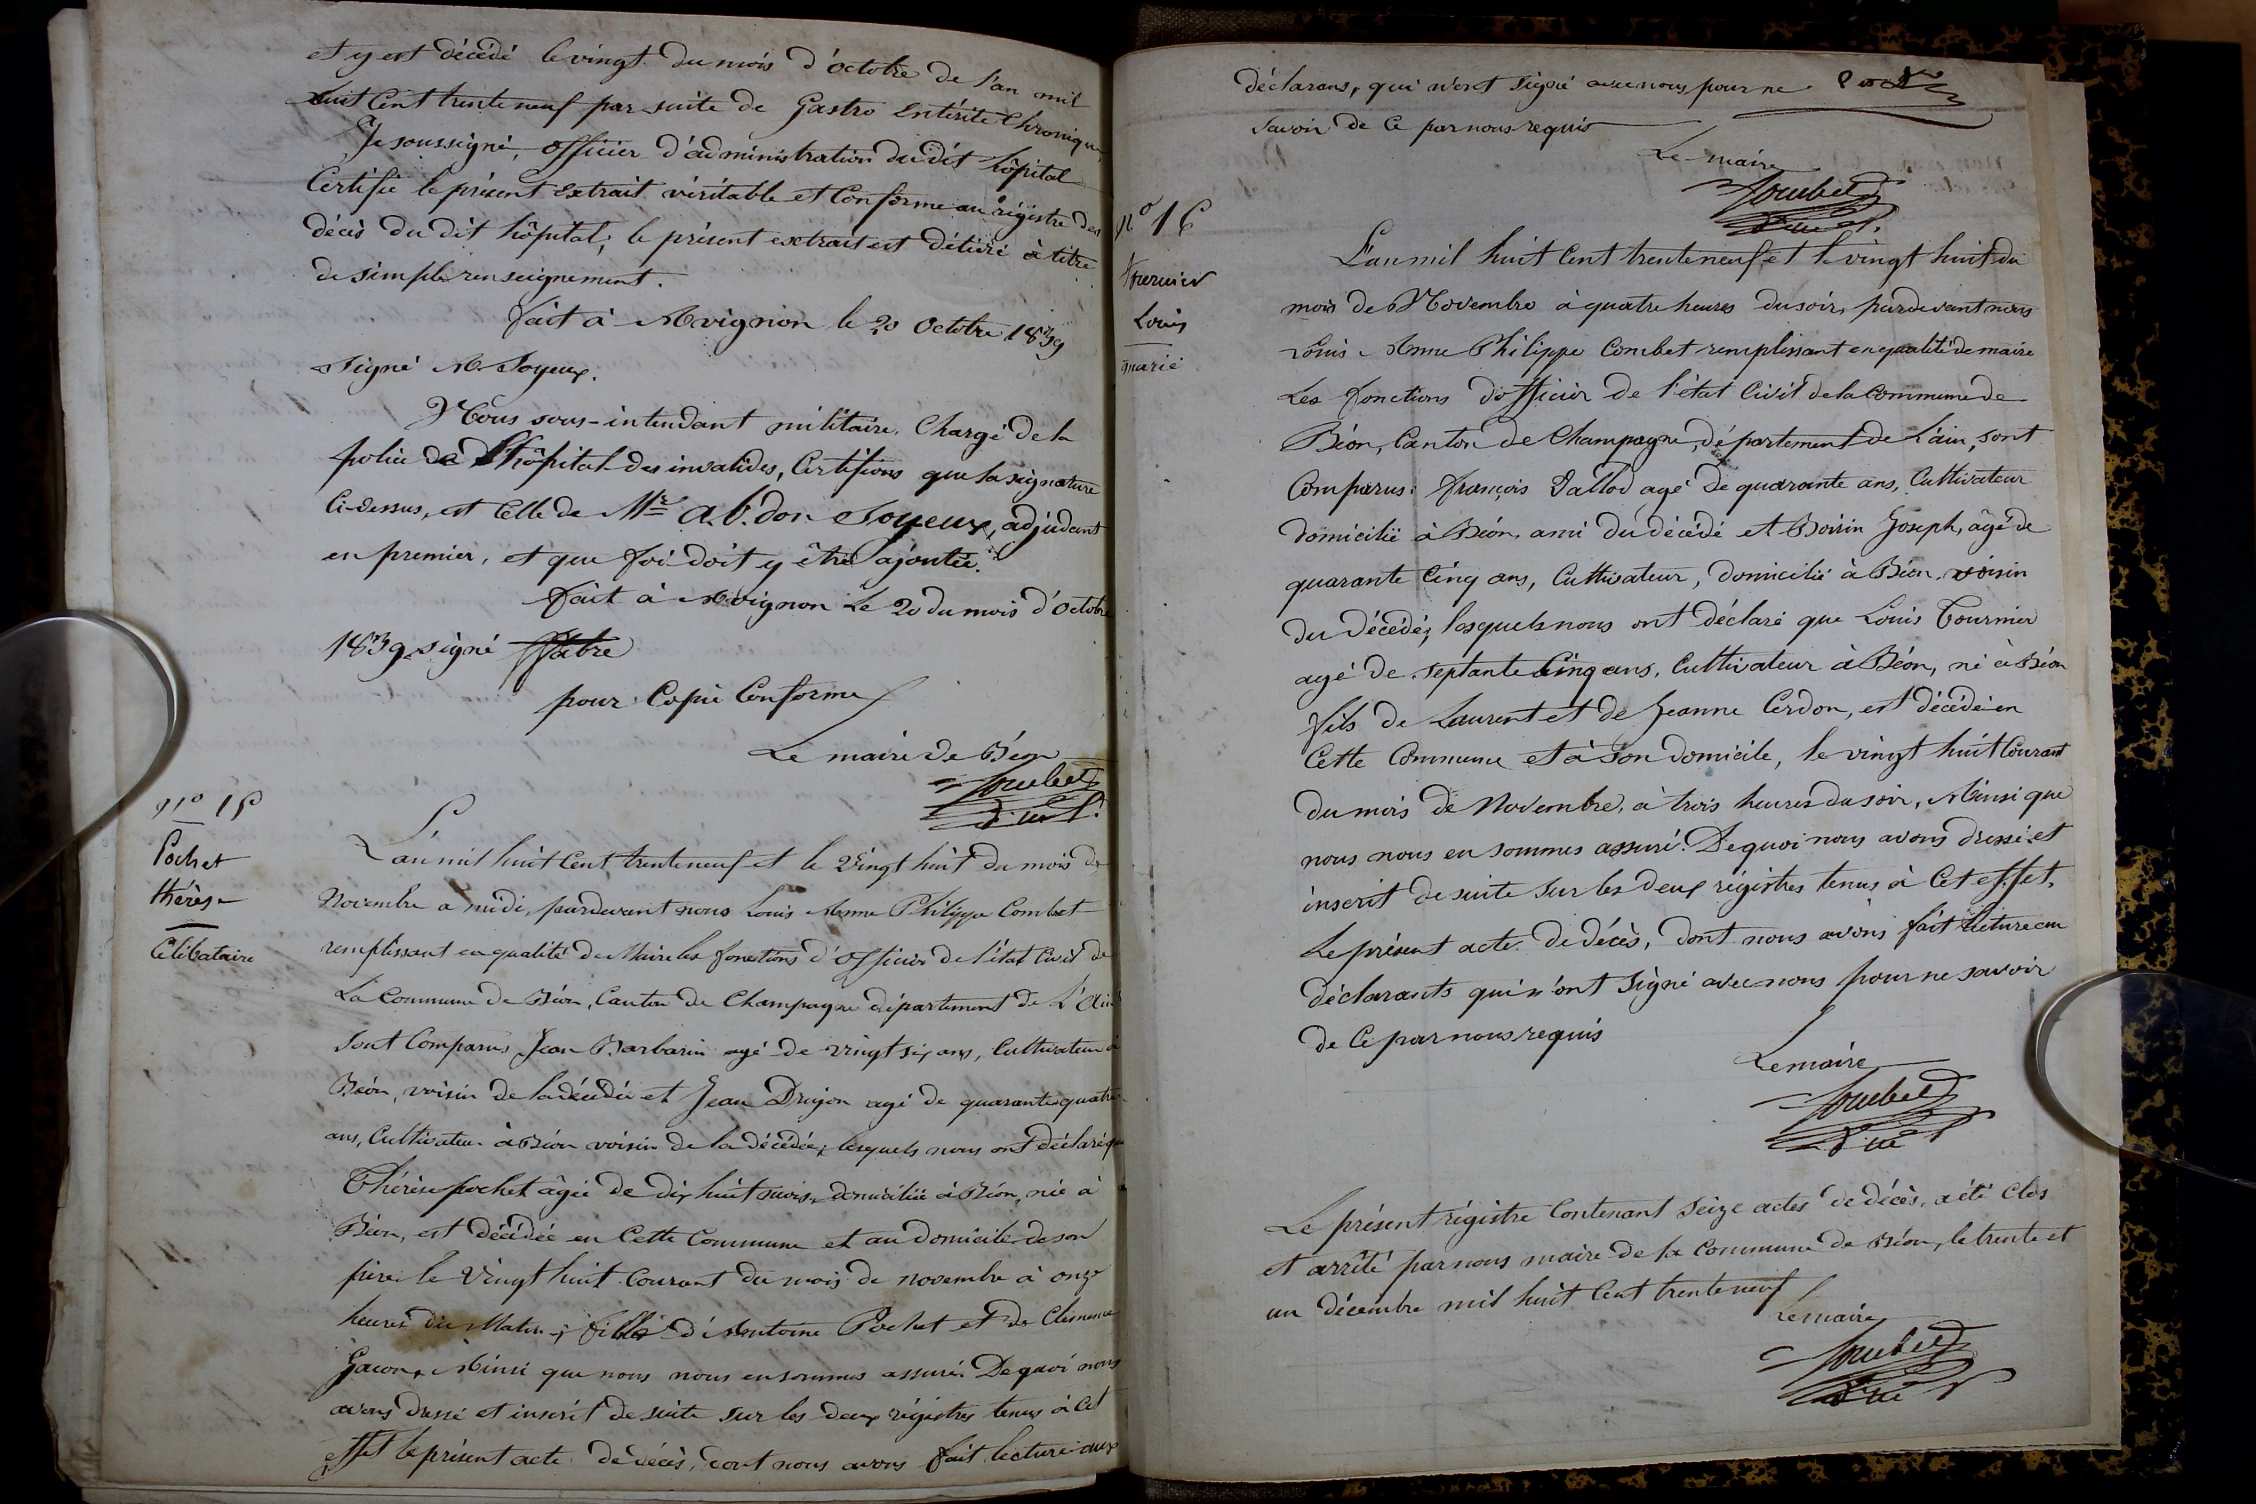 et y est décédé le vingt du mois d'octobre de l'an mil
huit Cent trente neuf par suite de Gastro Entérite Chronique
Je soussigné, officier d'administration du dit hôpital
Certifie le présent Extrait véritable et Conforme au régistre des
décès du dit hôpital; le présent extrait est délivré à titre
de simple renseignement.
fait à Avignon le 20 Octobre 1839
Signé A. Soyeux.
Nous sous-intendant militaire, Chargé de la
police de l'hôpital des invalides, Certifions que la signature
Ci-dessus, est Celle de Mr a.b.don Soyeux, adjudant
en premier, et que foi doit y être ajoutée.
fait à Avignon Le 20 du mois d'Octobre
1839 signé Fabre
pour Copie Conforme
Le maire de Béon
n° 15
Pochet
thérèse
Célibataire
L'an mil huit Cent trente neuf et le Vingt huit du mois de
Novembre a midi, pardevant nous Louis Anne Philippe Combet
remplissant en qualité de Maire les fonctions d'officier de l'état Civil de
La Commune de Béon, Canton de Champagne département de L'Ain
Sont Comparus Jean Barbarin agé de vingt six ans, Cultivateur à
Béon, voisin de la décédée et Jean Drujon agé de quarante quatre
ans, Cultivateur à Béon voisin de la décédée, lesquels nous ont déclaré que
Thérèse pochet âgée de dix huit mois, domiciliée à Béon, née à
Béon, est décédée en Cette Commune et au domicile de son
père le Vingt huit Courant du mois de novembre à onze
heures du Matin; fille d'Antoine Pochet et de Clémence
Gacon, Ainsi que nous nous en sommes assuré. De quoi nous
avons dressé et inscrit de suite sur les deux régistres tenus à Cet
effet le présent acte de décès, dont nous avons fait lecture aux
déclarans, qui n'ont signé avec nous pour ne
Savoir de Ce par nous requis
Le maire
n° 16
Tournier
Louis
marié
L'an mil huit Cent trente neuf et le vingt huit du
mois de Novembre à quatre heures du soir, pardevant nous
Louis Anne Philippe Combet remplissant en qualité de maire
Les fonctions d'officier de l'état Civil de la Commune de
Béon, Canton de Champagne, département de L'ain, sont
Comparus: françois Vallod agé de quarante ans, Cultivateur
domicilié à Béon, ami du décédé et Boirin Joseph, âgé de
quarante Cinq ans, Cultivateur, domicilié à Béon, voisin
du décédé; lesquels nous ont déclaré que Louis Tournier
agé de septante Cinq ans, Cultivateur à Béon, né à Béon
fils de Laurent et de Jeanne Cerdon, est décédé en
Cette Commune et à Son domicile, le vingt huit Courant
du mois de Novembre, à trois heures du soir, Ainsi que
nous nous en sommes assuré. De quoi nous avons dressé et
inscrit de suite Sur les deux régistres tenus à Cet effet,
Le présent acte de décès, dont nous avons fait lecture au
déclarants qui n'ont signé avec nous pour ne savoir
de Ce par nous requis
Le maire
Le présent régistre Contenant seize actes de décès, a été Clos
et arrêté par nous maire de la Commune de Béon, le trente et
un décembre mil huit Cent trente neuf
Le maire